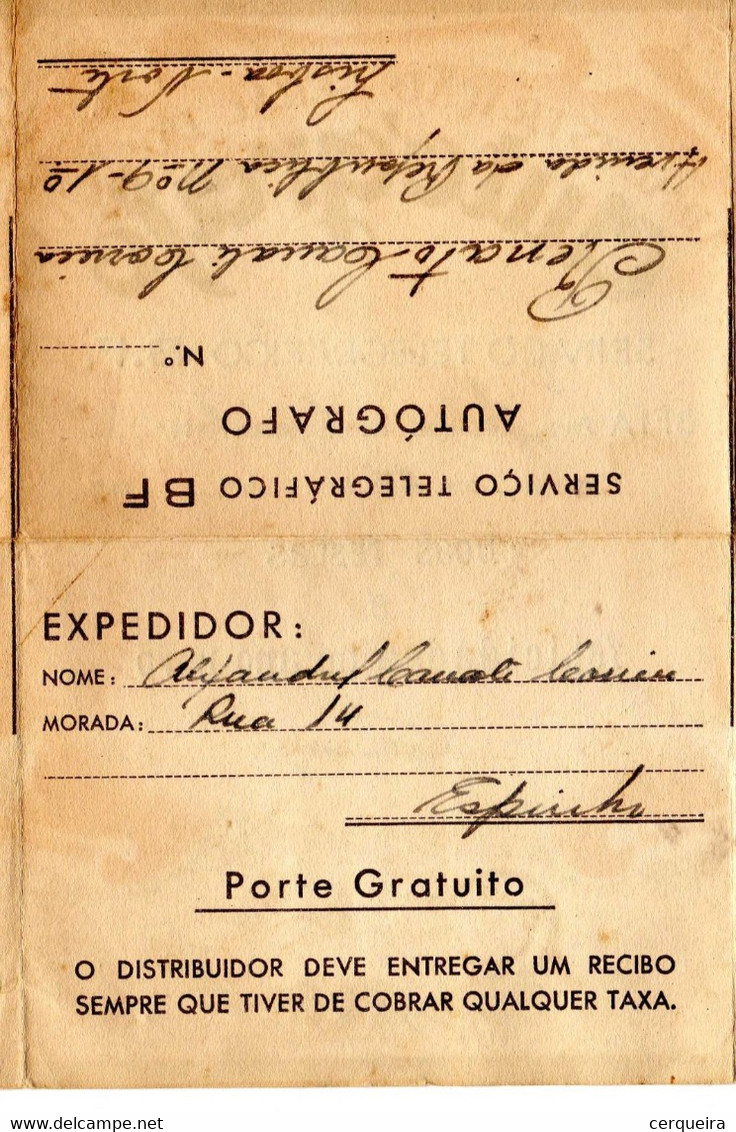 SERVIÇO TELEGRÁFICO BF
AUTÓGRAFO
N.º
Renato Canali Correia
Avenida da Republica nº 9-1º
Lisboa - Norte
EXPEDIDOR:
NOME: Alexandre Canali Correia
MORADA: Rua 14
Espinho
Porte Gratuito
O DISTRIBUIDOR DEVE ENTREGAR UM RECIBO
SEMPRE QUE TIVER DE COBRAR QUALQUER TAXA.
www.delcampe.net
cerqueira